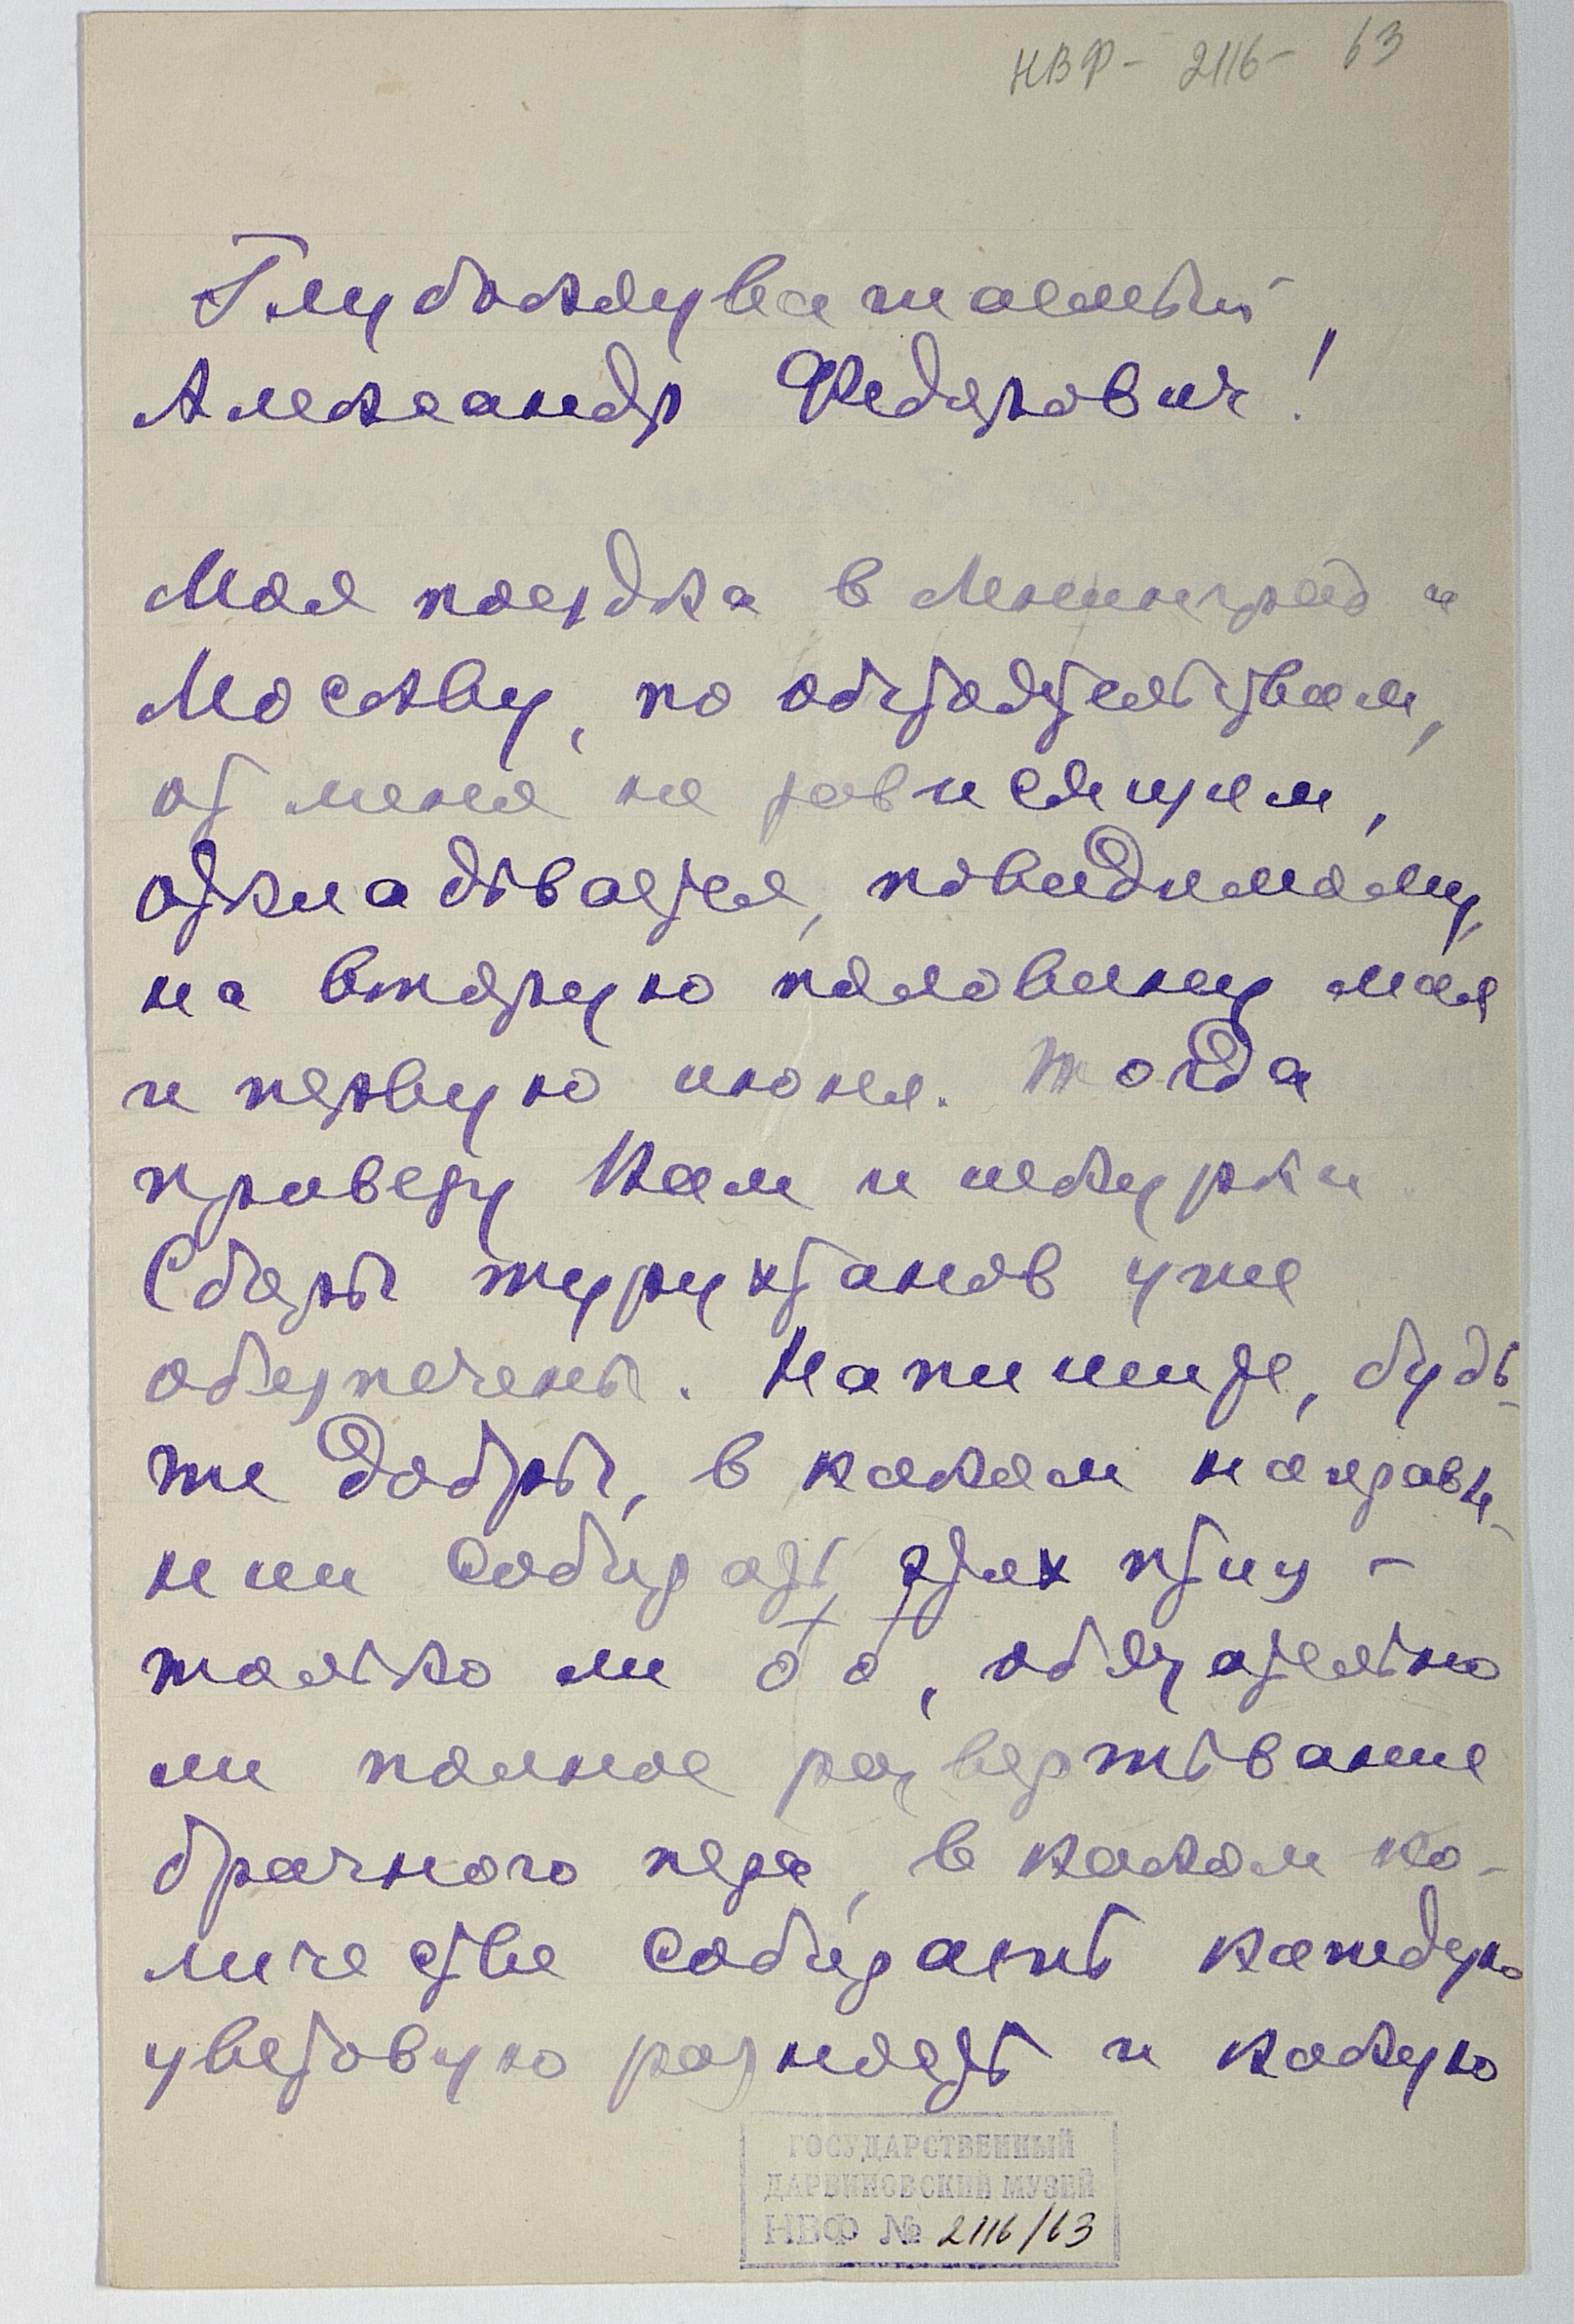 НВФ - 2116 - 63
Глубокоуважаемый,
Александр Федорович!
Моя поездка в Ленинград и
Москву, по обстоятельствам,
от меня не зависящем,
откладывается, повидимому,
на вторую половину мая
и первую июня. Тогда
привезу Вам и шкурки
Сборы турухтанов уже
обеспечены. Напишите, будь-
те добры, в каком направле-
нии собирать этих птиц -
только ли ♂♂, обязательно
ли полное развертывание
брачного пера, в каком ко-
личестве собирать каждую
цветовую разность и какую
ГОСУДАРСТВЕННЫЙ
ДАРВИНОВСКИЙ МУЗЕЙ
НВФ № 2116/63